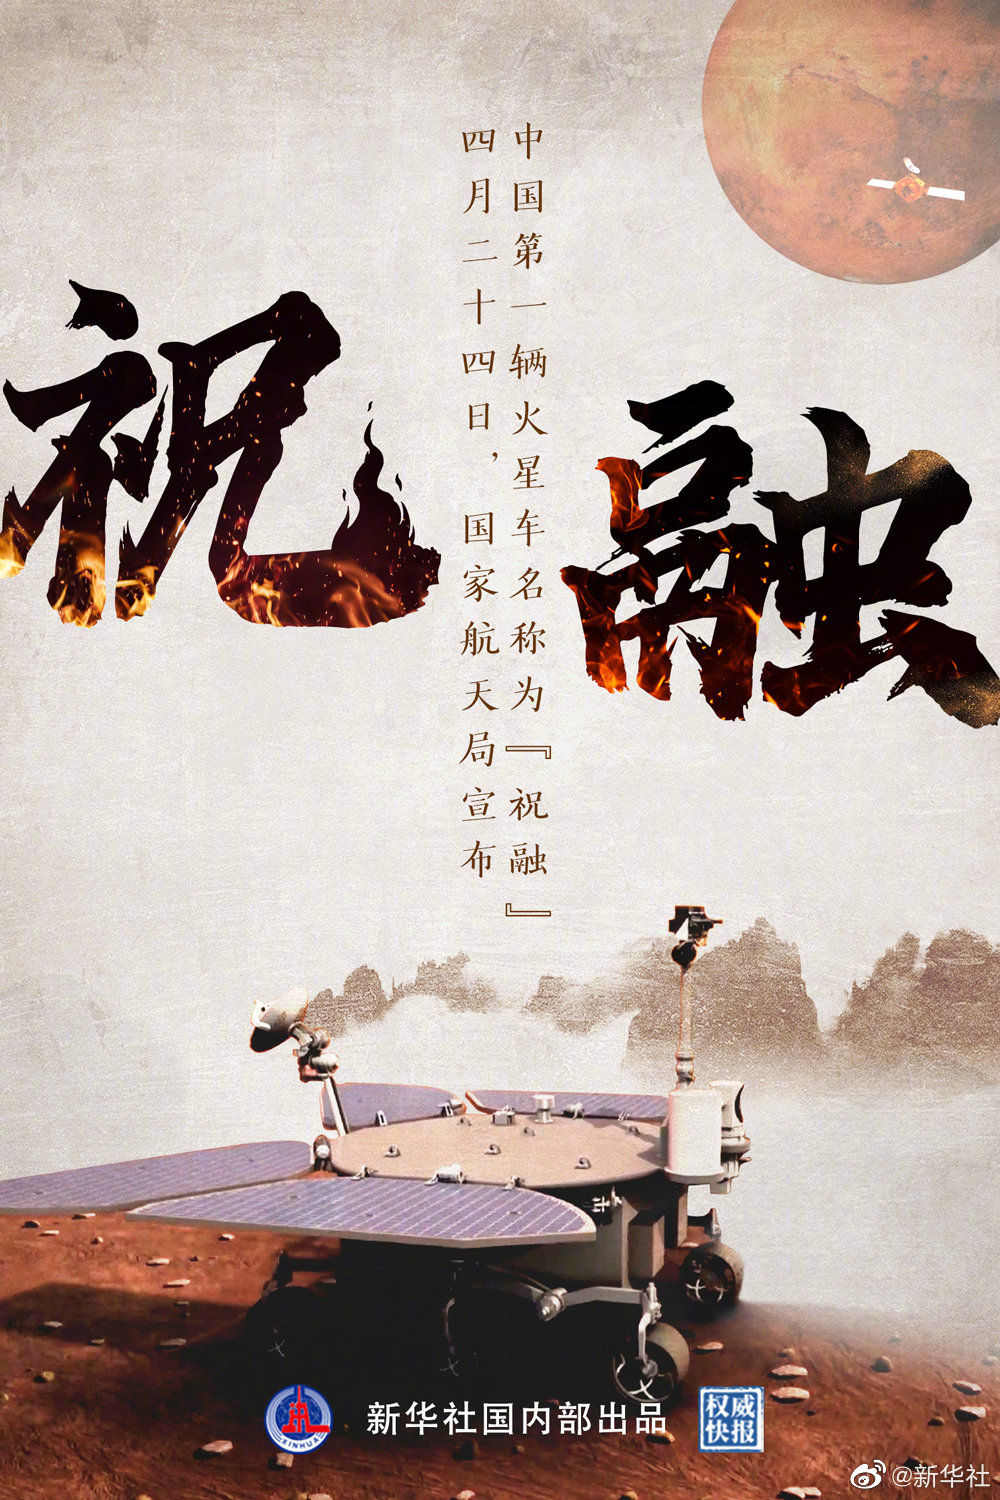 祝融
四月二十四日，国家航天局宣布
中国第一辆火星车名称为『祝融』
XINHUA
新华社国内部出品
权威
快报
@新华社